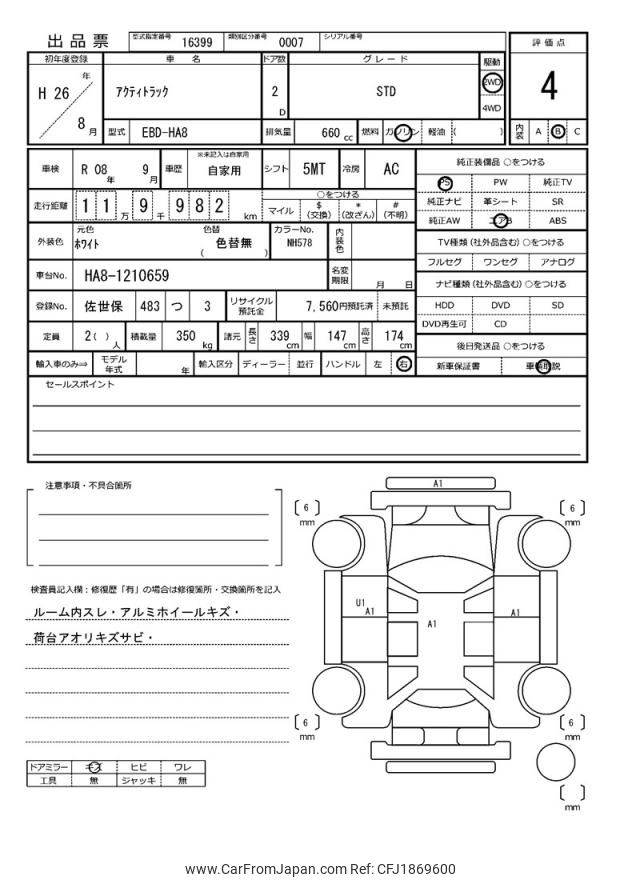 出品票 型式指定番号 16399 類別区分番号 0007 シリアル番号
評価点
4
内装 A B C
初年度登録 車名 ドア数 グレード 駆動
H 26 年 8 月 アクティトラック 2 D STD 2WD 4WD
型式 EBD-HA8 排気量 660 cc 燃料 ガソリン 軽油 ( )
車検 R 08 年 9 月 車歴 ※未記入は自家用 自家用 シフト 5MT 冷房 AC
走行距離 1 1 万 9 千 9 8 2 km ○をつける
マイル $(交換) *(改ざん) #(不明)
外装色 元色 ホワイト 色替 色替無 ( ) カラーNo. NH578 内装色
車台No. HA8-1210659 名変期限 月 日
登録No. 佐世保 483 つ 3 リサイクル預託金 7,560円預託済 未預託
定員 2( ) 人 積載量 350 kg 諸元 長さ 339 cm 幅 147 cm 高さ 174 cm
輸入車のみ⇒ モデル年式 年 輸入区分 ディーラー 並行 ハンドル 左 右
純正装備品 ○をつける
PS PW 純正TV
純正ナビ 革シート SR
純正AW エアB ABS
TV種類(社外品含む)○をつける
フルセグ ワンセグ アナログ
ナビ種類(社外品含む)○をつける
HDD DVD SD
DVD再生可 CD
後日発送品 ○をつける
新車保証書 車輌取説
セールスポイント
注意事項・不具合箇所
検査員記入欄：修復歴「有」の場合は修復箇所・交換箇所を記入
ルーム内スレ・アルミホイールキズ・
荷台アオリキズサビ・
ドアミラー キズ ヒビ ワレ
工具 無 ジャッキ 無
A1
[ 6 ] mm
[ 6 ] mm
U1
A1
A1
A1
[ 6 ] mm
[ 6 ] mm
[ ] mm
www.CarFromJapan.com Ref: CFJ1869600